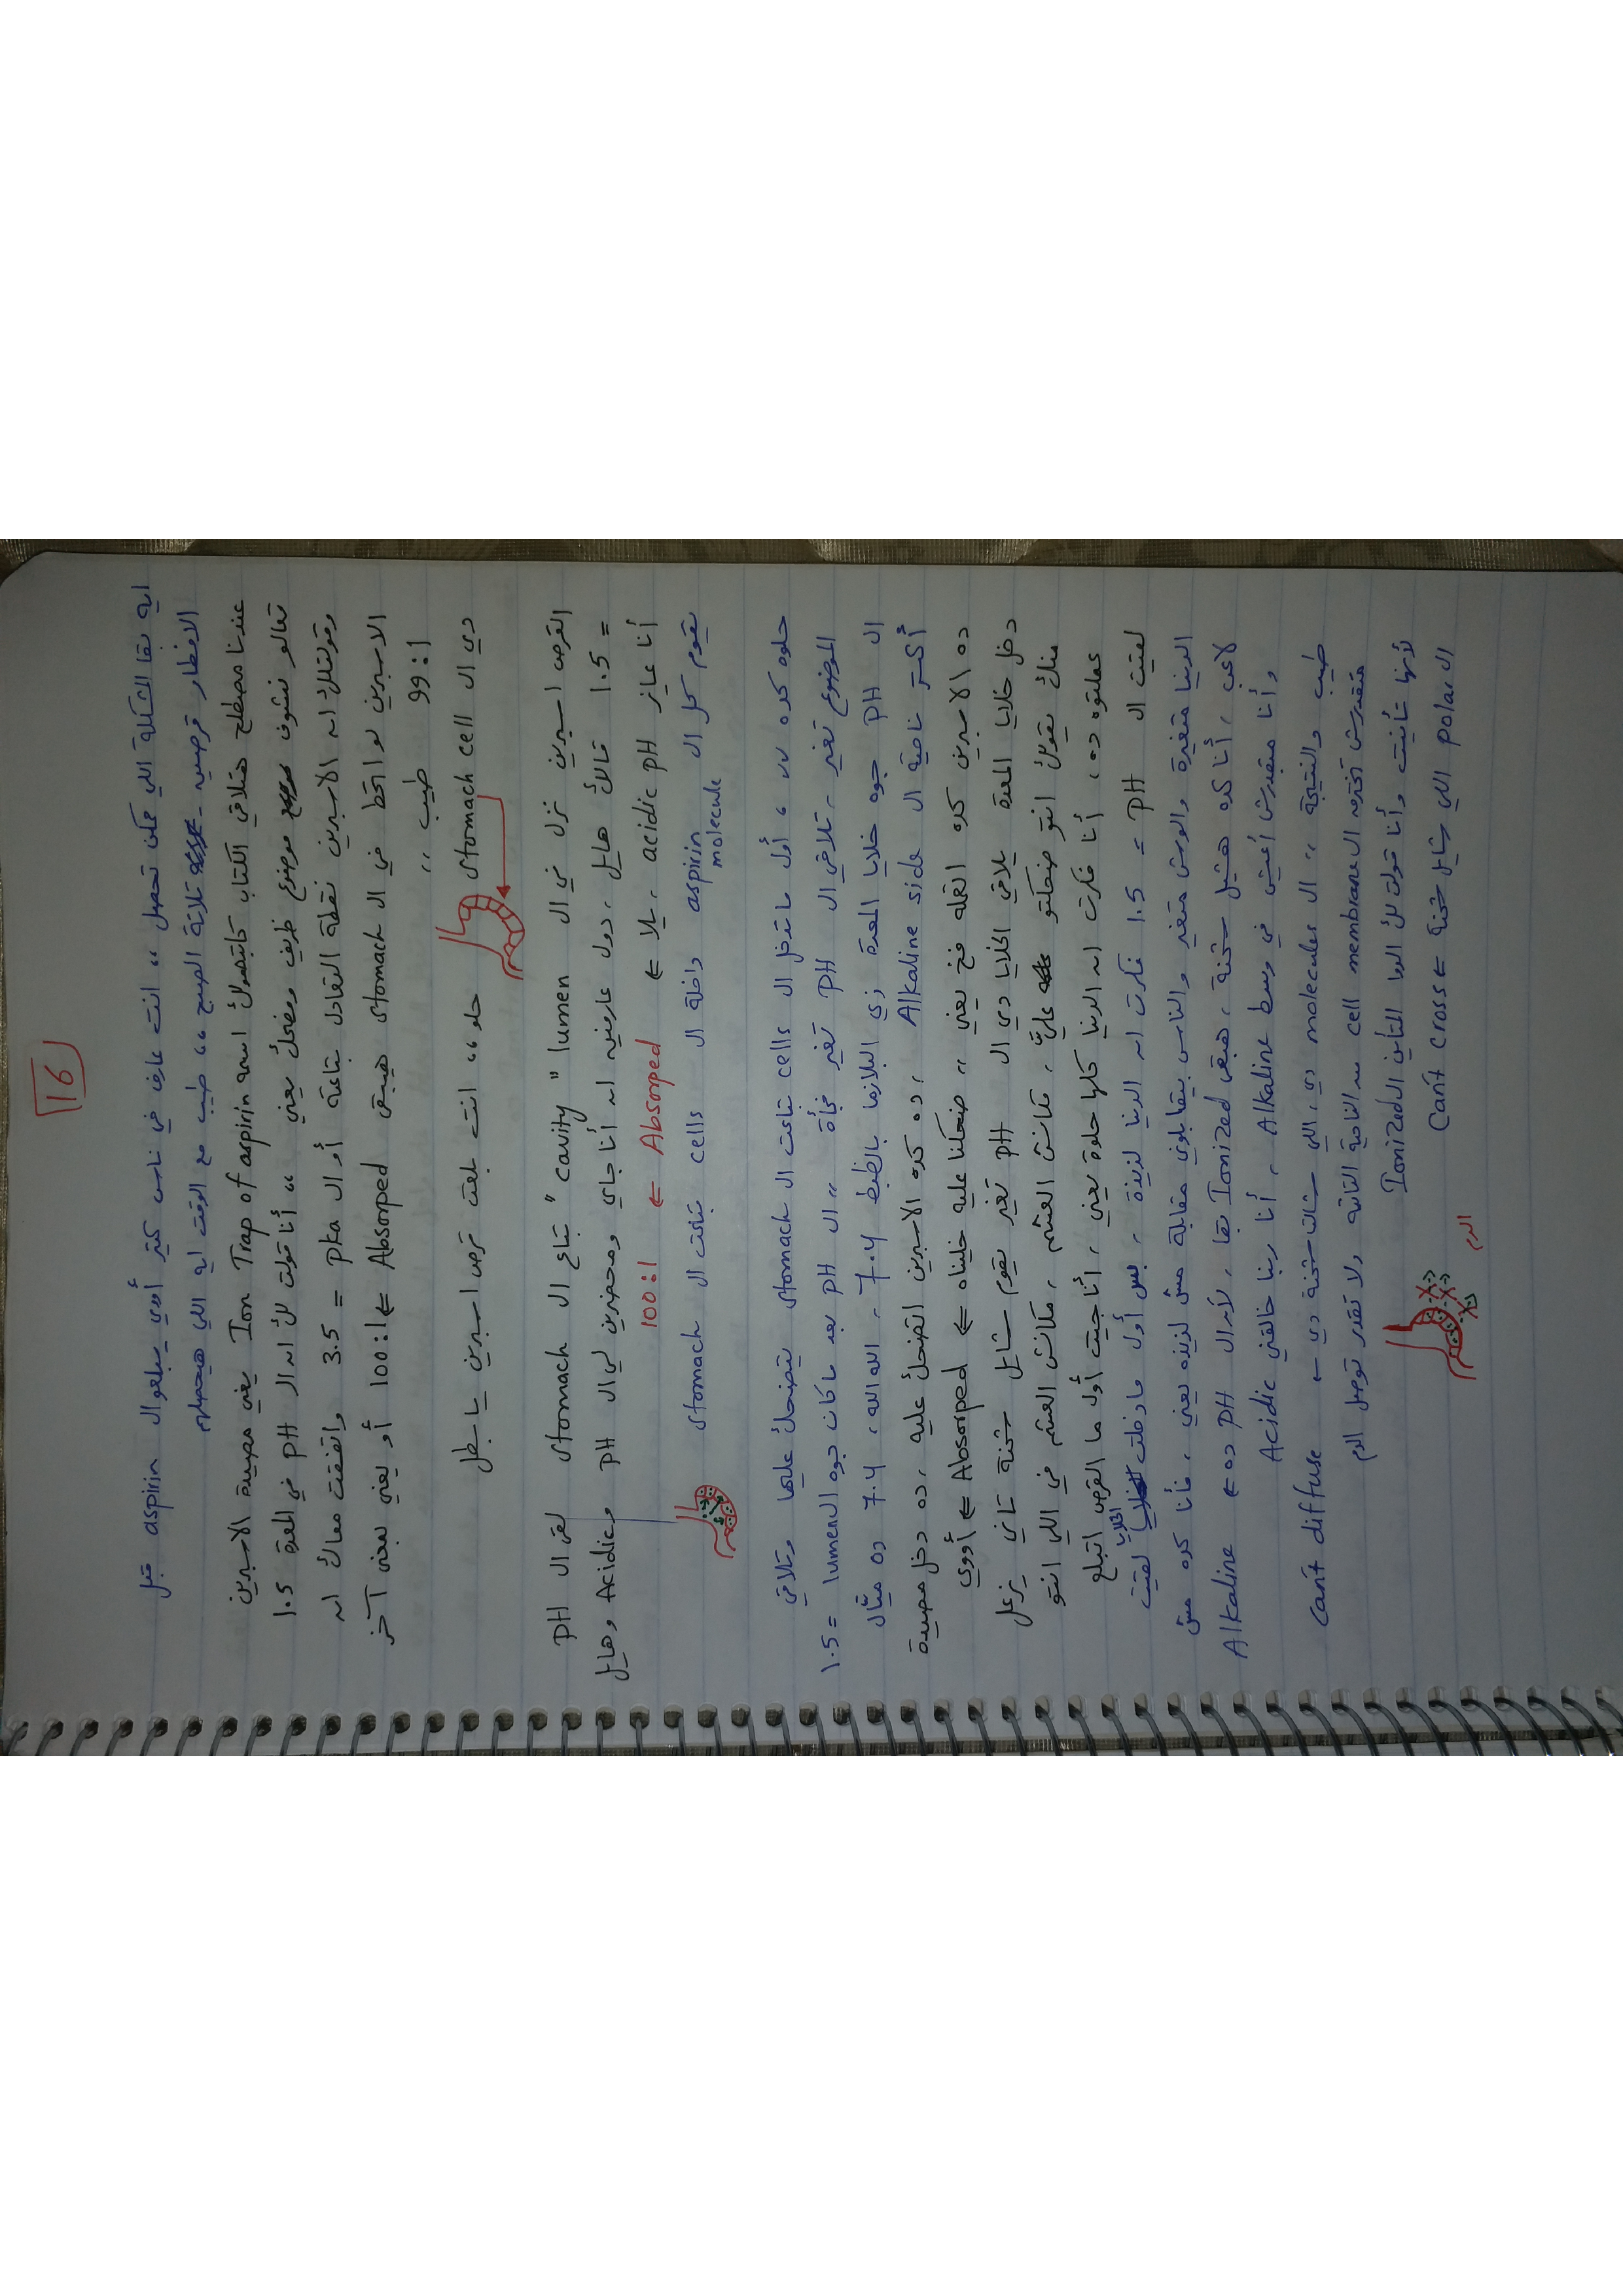 16
ايه بقا المشكلة اللي ممكن تحصل ،، انت عارف في ناس كتير أوي بيبلعوا ال aspirin قبل
الافطار قرصين - تلاتة الصبح ،، طيب مع الوقت ايه اللي هيحصلهم
عندنا مصطلح هتلاقي الكتاب كاتبهولك اسمه Ion Trap of aspirin يعني مصيدة الاسبرين
تعالو نشوف موضوع ظريف ومضحك يعني ،، أنا قولت لك ان ال PH في المعدة 1.5
وقولتلك ان الاسبرين نقطة التعادل بتاعته أو ال pka = 3.5 واتفقت معاك ان
الاسبرين لو اتحط في ال stomach هيبقى Absorped ← 100:1 أو يعني بمعنى آخر
99:1 طيب ،،
دي ال stomach cell حلو ،، انت بلعت قرص اسبرين يا بطل
القرص اسبرين نزل في ال lumen "cavity" بتاع ال stomach لقى ال PH
= 1.5 قالك هايل ، دول عارفين ان أنا جاي ومحضرين لي ال PH Acidic وهايل
أنا عايز acidic pH ، يلا ← Absorped ← 100:1
يقوم كل ال aspirin molecule داخلة ال cells بتاعت ال stomach
حلوه كده ،، أول ما تدخل ال cells بتاعت ال stomach يتضحك عليها وتلاقي
الموضوع تغير ، تلاقي ال PH تغير فجأة ،، ال PH بعد ما كان جوه ال lumen = 1.5
ال PH جوه خلايا المعدة زي البلازما بالظبط 7.4 ، الله الله ، 7.4 ده ميال
أكتر ناحية ال Alkaline side ، ده كده الاسبرين اتضحك عليه ، ده دخل مصيدة
ده الاسبرين كده اتعمله فخ يعني ،، ضحكنا عليه خليناه ← Absorped ← أووي
دخل خلايا المعدة يلاقي الخلايا دي ال PH تغير يقوم شايل شحنة تاني يزعل
منك يقولك انتو ضحكتو عليَّ ، مكانش العشم ، مكانش العشم في اللي انتو
عملتوه ده ، أنا فكرت ان الدنيا كلها حلوة يعني ، أنا جيت أول ما القرص اتبلع
لقيت ال PH = 1.5 فكرت ان الدنيا لذيذة ، بس أول ما دخلت الخلايا لقيت
الدنيا متغيرة والوش متغير والناس بيقابلوني مقابلة مش لذيذه يعني ، فأنا كده مش
لاعب ، أنا كده هشيل شحنة ، هبقى Ionized بقا ، لأن ال PH ده ← Alkaline
وأنا مقدرش أعيش في وسط Alkaline ، أنا ربنا خالقني Acidic
طيب والنتيجة ،، ال molecules دي ، اللي شالت شحنة دي ← Can't diffuse
متقدرش تخترق ال cell membrane من الناحية التانية ولا تقدر توصل الدم
لأنها تأينت وأنا قولت لك الدوا المتأين ال Ionized
ال polar اللي شايل شحنة ← Can't cross
الدم